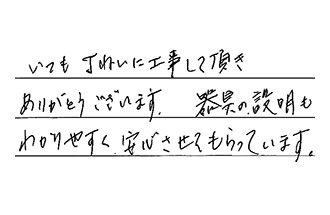 いつも丁ねいに工事して頂き
ありがとうございます。 器具の説明も
わかりやすく安心させてもらっています。